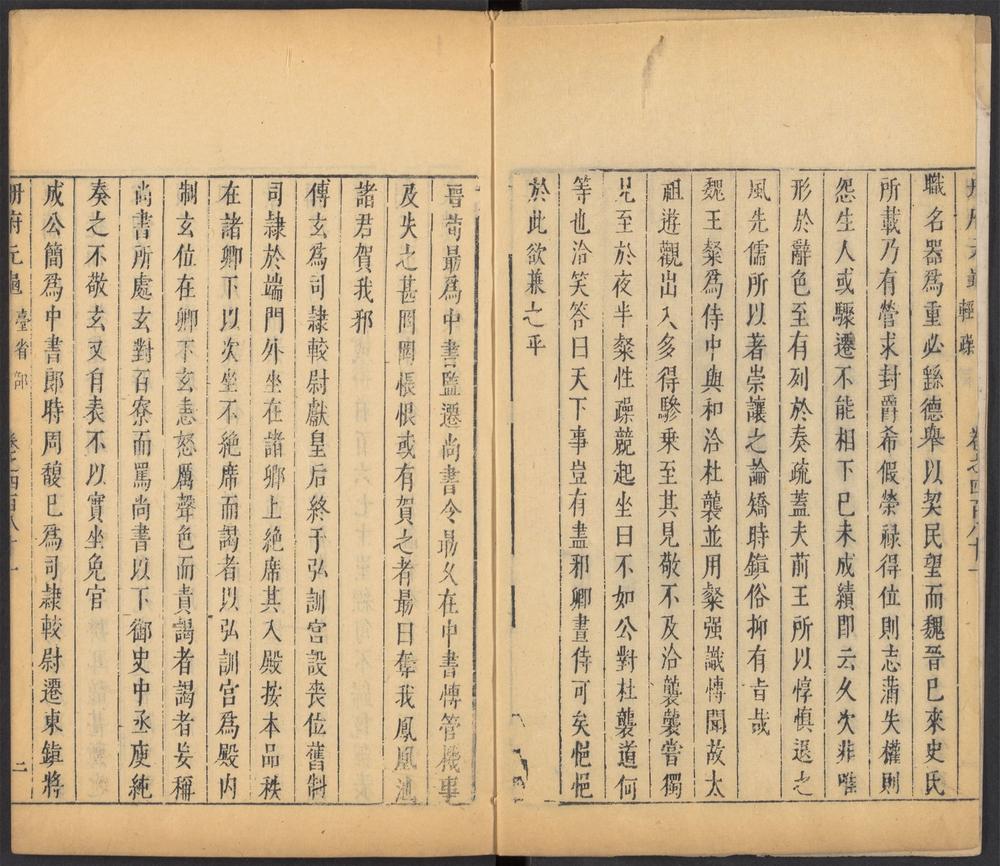 輕躁
卷之四百八十一
職名器爲重必繇德舉以契民望而魏晉已來史氏
所載乃有營求封爵希假榮祿得位則志滿失權則
怨生人或驟遷不能相下已未成績即云久次非唯
形於辭色至有列於奏疏蓋夫前王所以惇慎退之
風先儒所以著崇讓之論矯時鎮俗抑有旨哉
魏王粲爲侍中與和洽杜襲並用粲强識愽聞故太
祖遊觀出入多得驂乗至其見敬不及洽襲襲嘗獨
見至於夜半粲性躁競起坐曰不如公對杜襲道何
等也洽笑答曰天下事豈有盡邪卿晝侍可矣悒悒
於此欲兼之乎
晉荀最爲中書監遷尚書令最久在中書愽管機事
及失之甚罔罔悵恨或有賀之者最曰奪我鳳凰池
諸君賀我邪
傅玄爲司隷較尉獻皇后終于弘訓宮設喪位舊制
司隷於端門外坐在諸卿上絶席其入殿按本品秩
在諸卿下以次坐不絶席而謁者以弘訓宮爲殿内
制玄位在卿下玄恚怒厲聲色而責謁者謁者妄稱
尚書所處玄對百寮而罵尚書以下御史中丞庾純
奏之不敬玄又自表不以實坐免官
成公簡爲中書郎時周馥已爲司隷較尉遷東鎮將
册府元龜 臺省部
卷之四百八十一
二